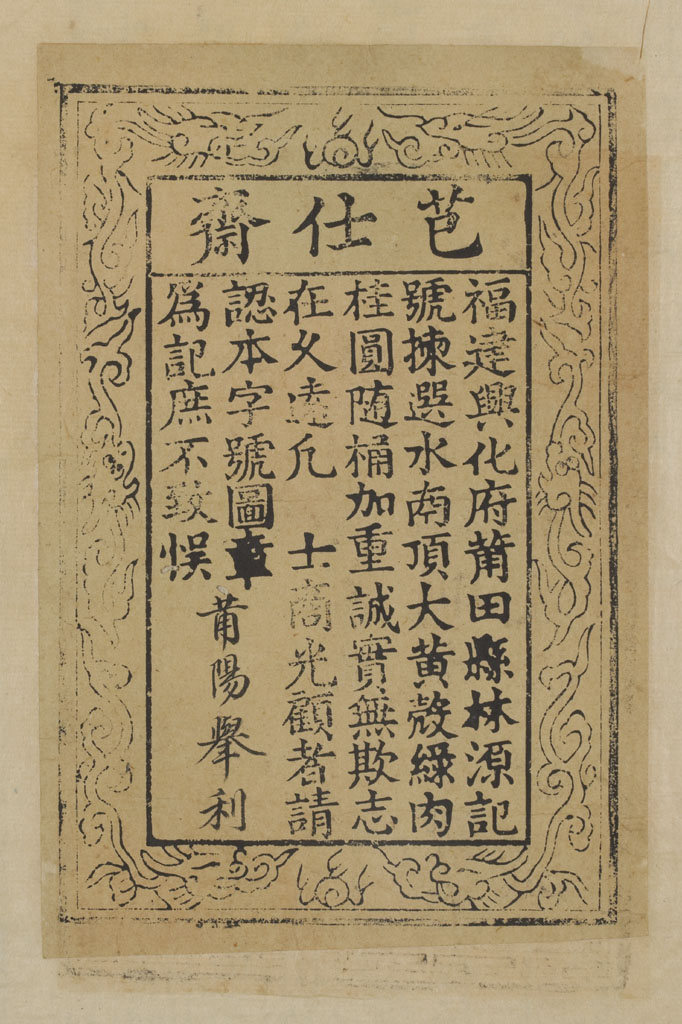 芑仕齋
福建興化府莆田縣林源記
號揀選水南頂大黄殼綠肉
桂圓随桶加重誠實無欺志
在久遠凢 士商光顧者請
認本字號圖章
爲記庶不致悮
莆陽舉利